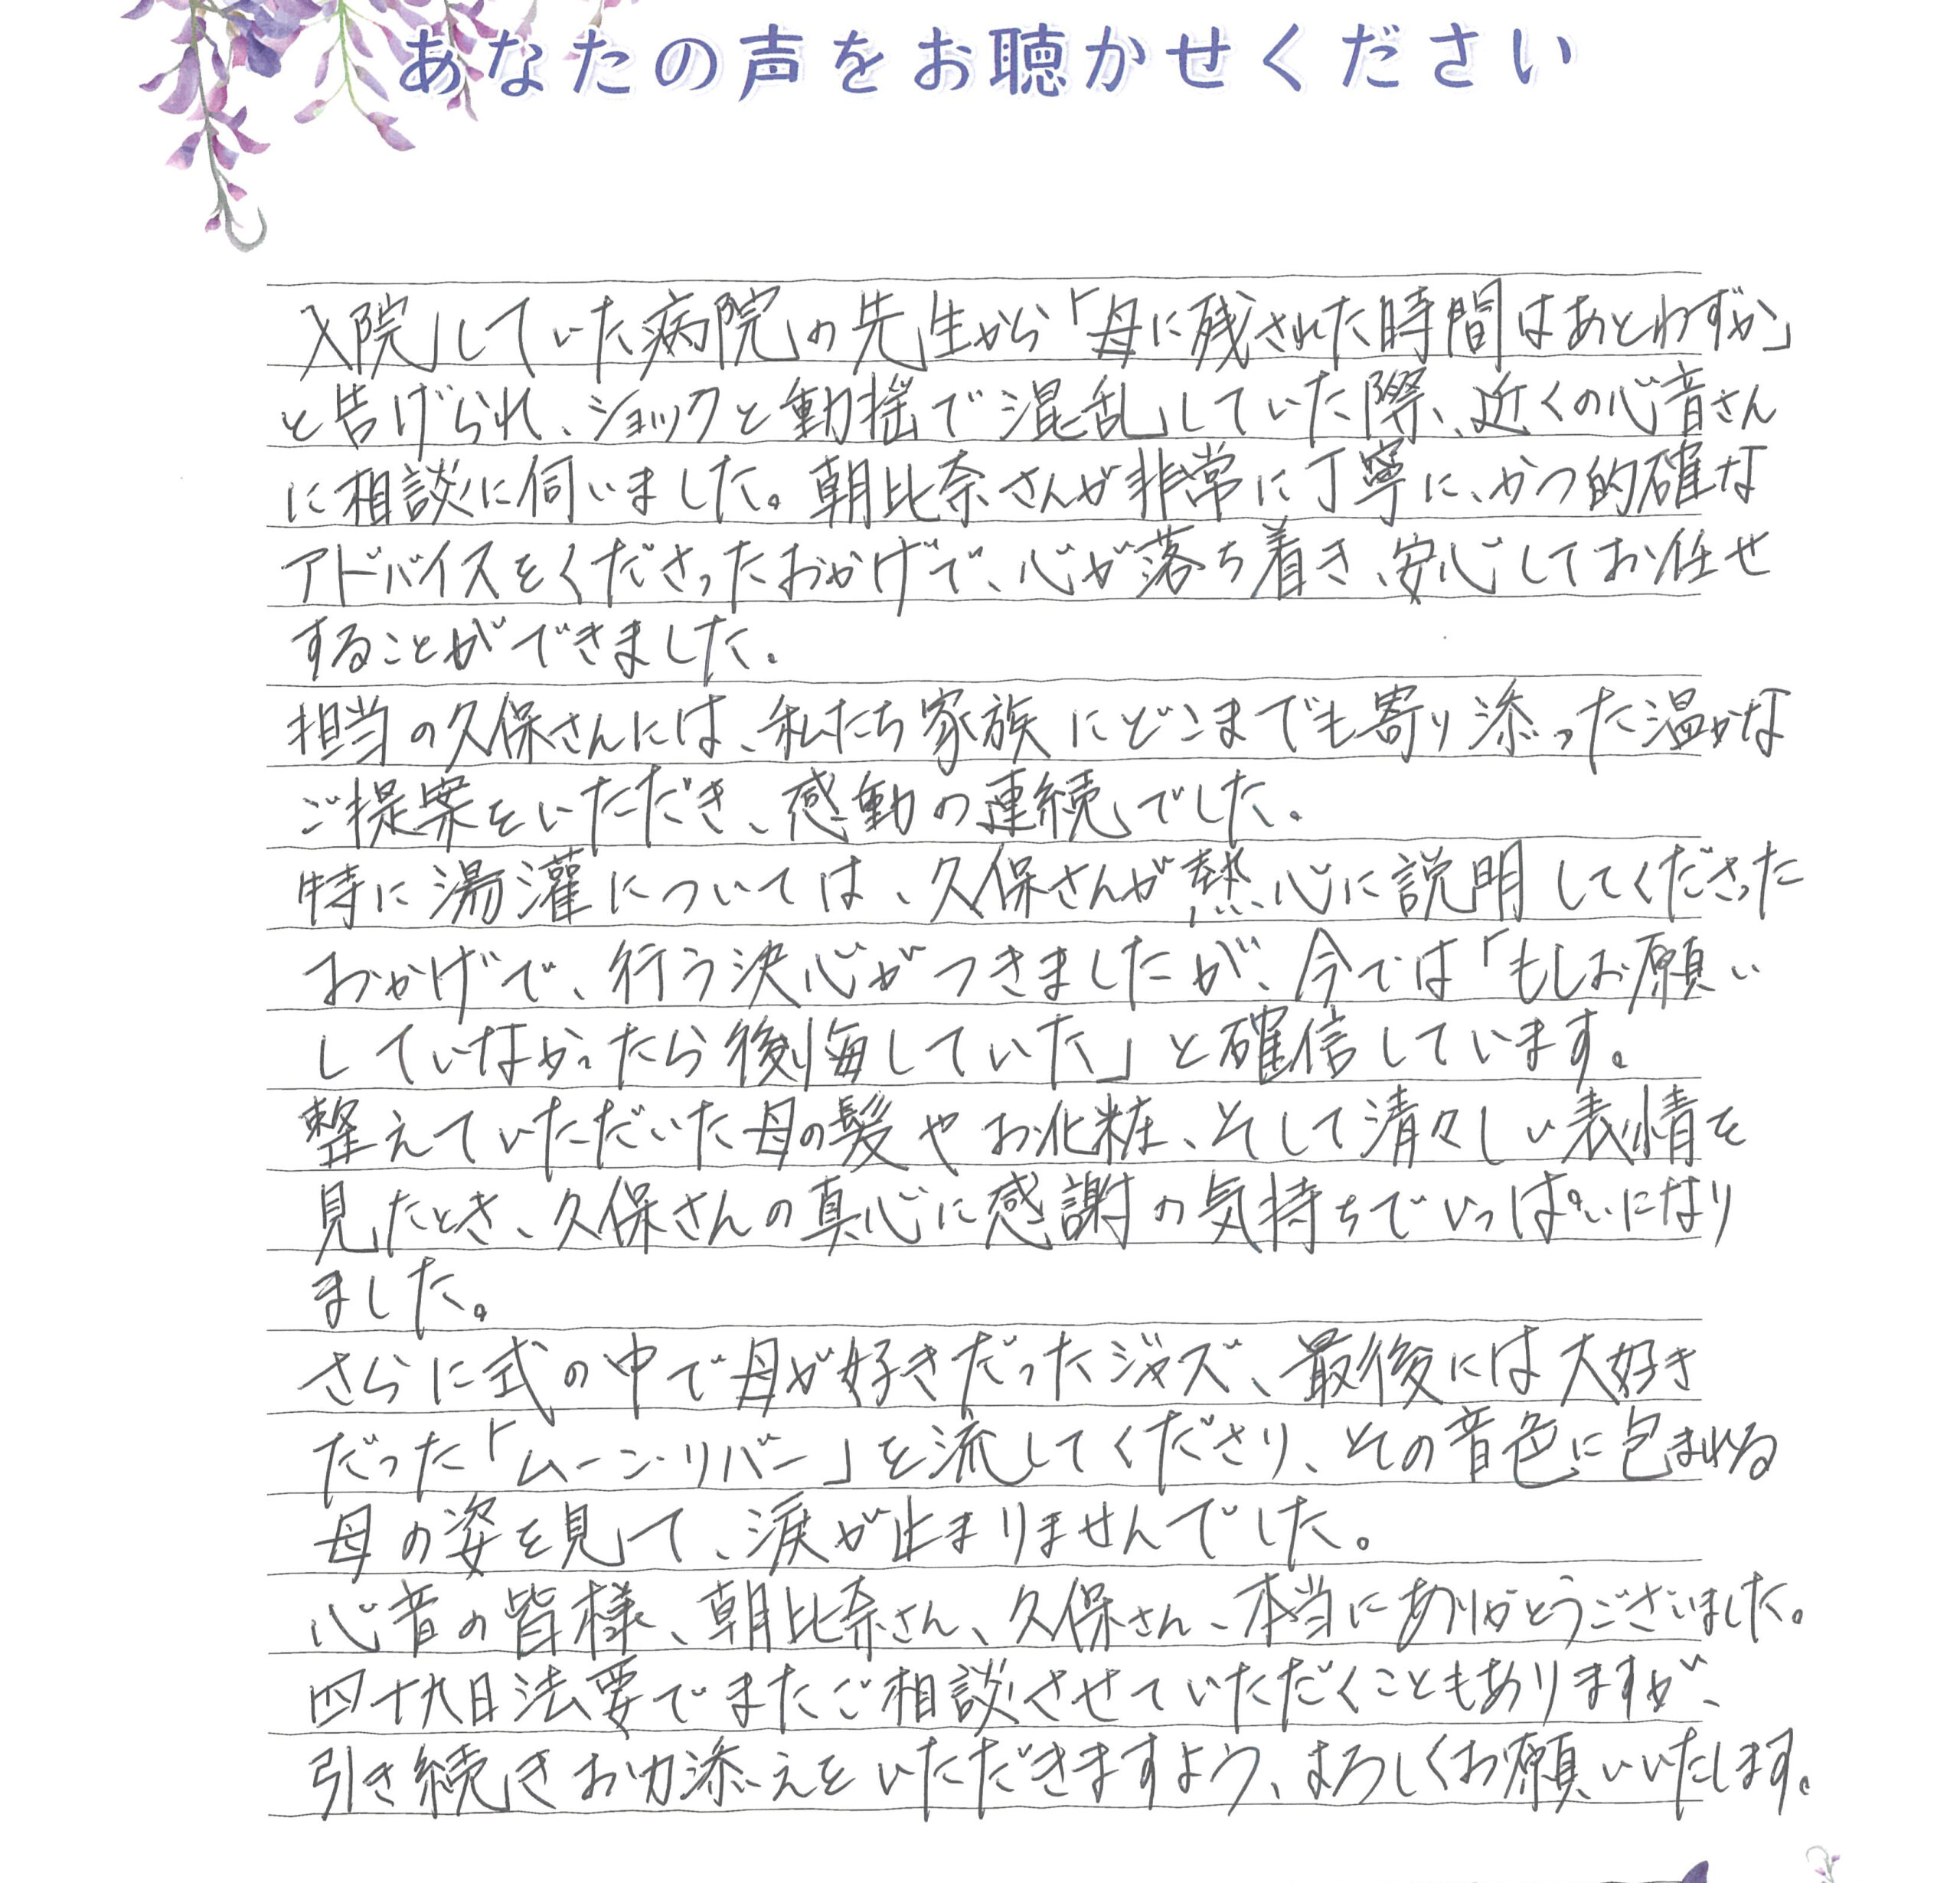 あなたの声をお聴かせください
入院していた病院の先生から「母に残された時間はあとわずか」
と告げられ、ショックと動揺で混乱していた際、近くの心音さん
に相談に伺いました。朝比奈さんが非常に丁寧に、かつ的確な
アドバイスをくださったおかげで、心が落ち着き、安心してお任せ
することができました。
担当の久保さんには、私たち家族にどこまでも寄り添った温かな
ご提案をいただき、感動の連続でした。
特に湯灌については、久保さんが熱心に説明してくださった
おかげで、行う決心がつきましたが、今では「もしお願い
していなかったら後悔していた」と確信しています。
整えていただいた母の髪やお化粧、そして清々しい表情を
見たとき、久保さんの真心に感謝の気持ちでいっぱいになり
ました。
さらに式の中で母が好きだったジャズ、最後には大好き
だった「ムーン・リバー」を流してくださり、その音色に包まれる
母の姿を見て、涙が止まりませんでした。
心音の皆様、朝比奈さん、久保さん、本当にありがとうございました。
四十九日法要でまたご相談させていただくこともありますが、
引き続きお力添えをいただきますよう、よろしくお願いいたします。